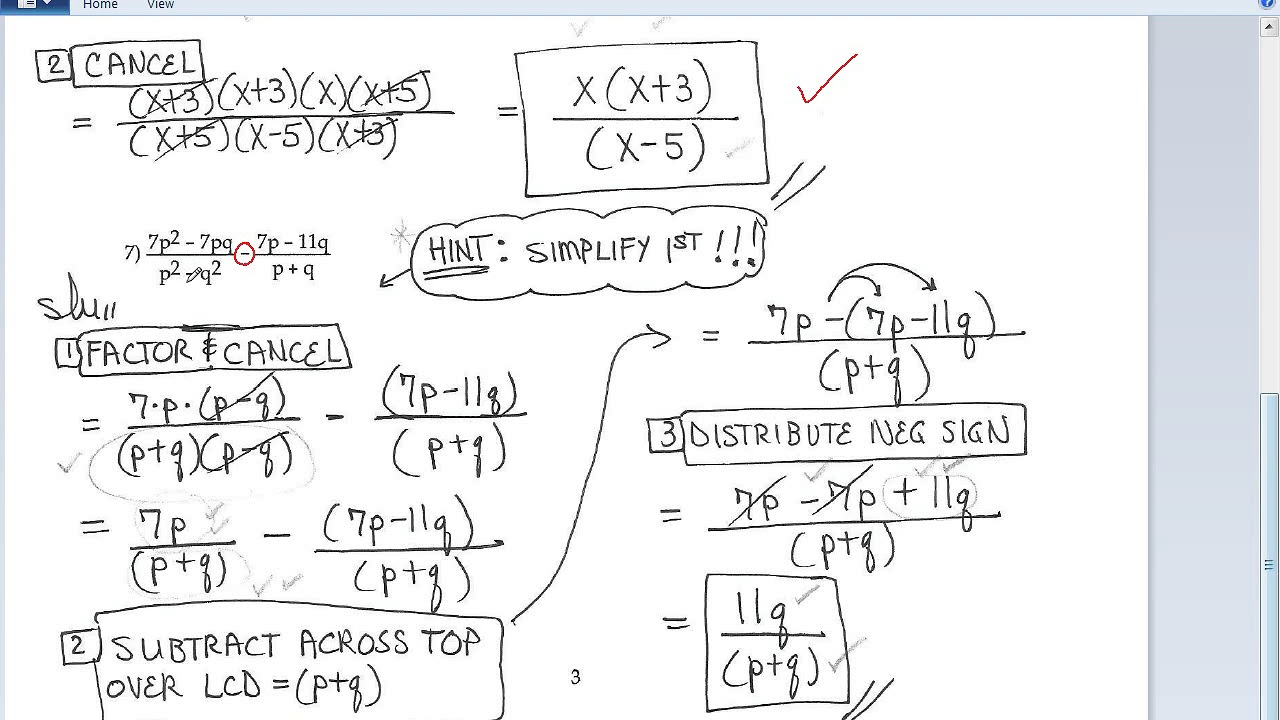 Home View
2 CANCEL
= (x+3)(x+3)(x)(x+5) / (x+5)(x-5)(x+3) = x(x+3) / (x-5)
7) 7p² – 7pq / p² – q² – 7p – 11q / p + q
HINT: SIMPLIFY 1ST !!!
1 FACTOR & CANCEL
= 7·p·(p-q) / (p+q)(p-q) - (7p-11q) / (p+q)
= 7p / (p+q) - (7p-11q) / (p+q)
2 SUBTRACT ACROSS TOP
OVER LCD = (p+q)
= 7p -(7p-11q) / (p+q)
3 DISTRIBUTE NEG SIGN
= 7p - 7p + 11q / (p+q)
= 11q / (p+q)
3